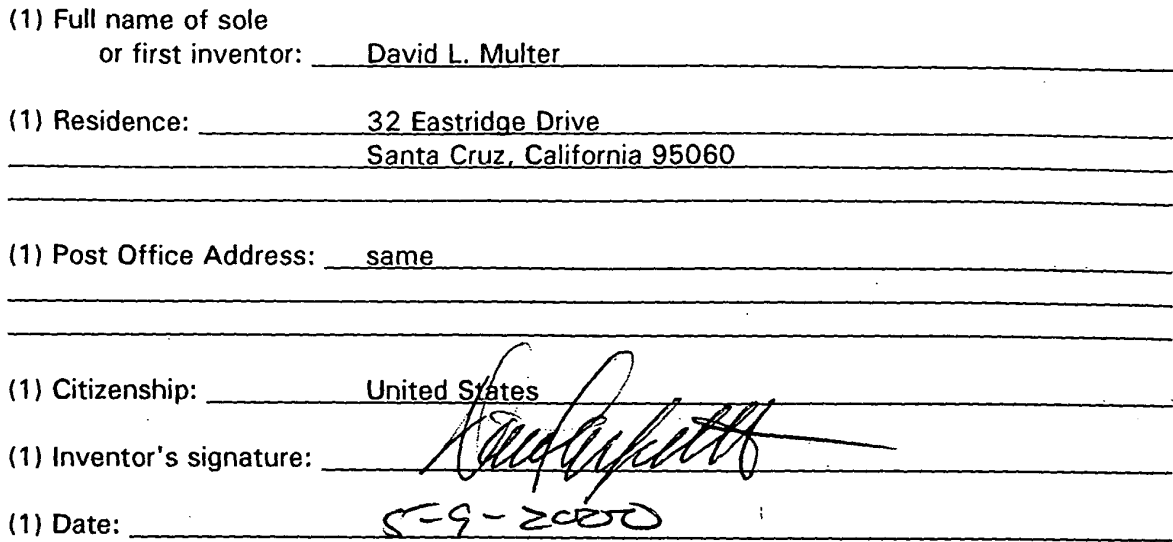 (1) Full name of sole
or first inventor: David L. Multer
(1) Residence: 32 Eastridge Drive
Santa Cruz, California 95060
(1) Post Office Address: same
(1) Citizenship: United States
(1) Inventor's signature:
(1) Date: 5-9-2000